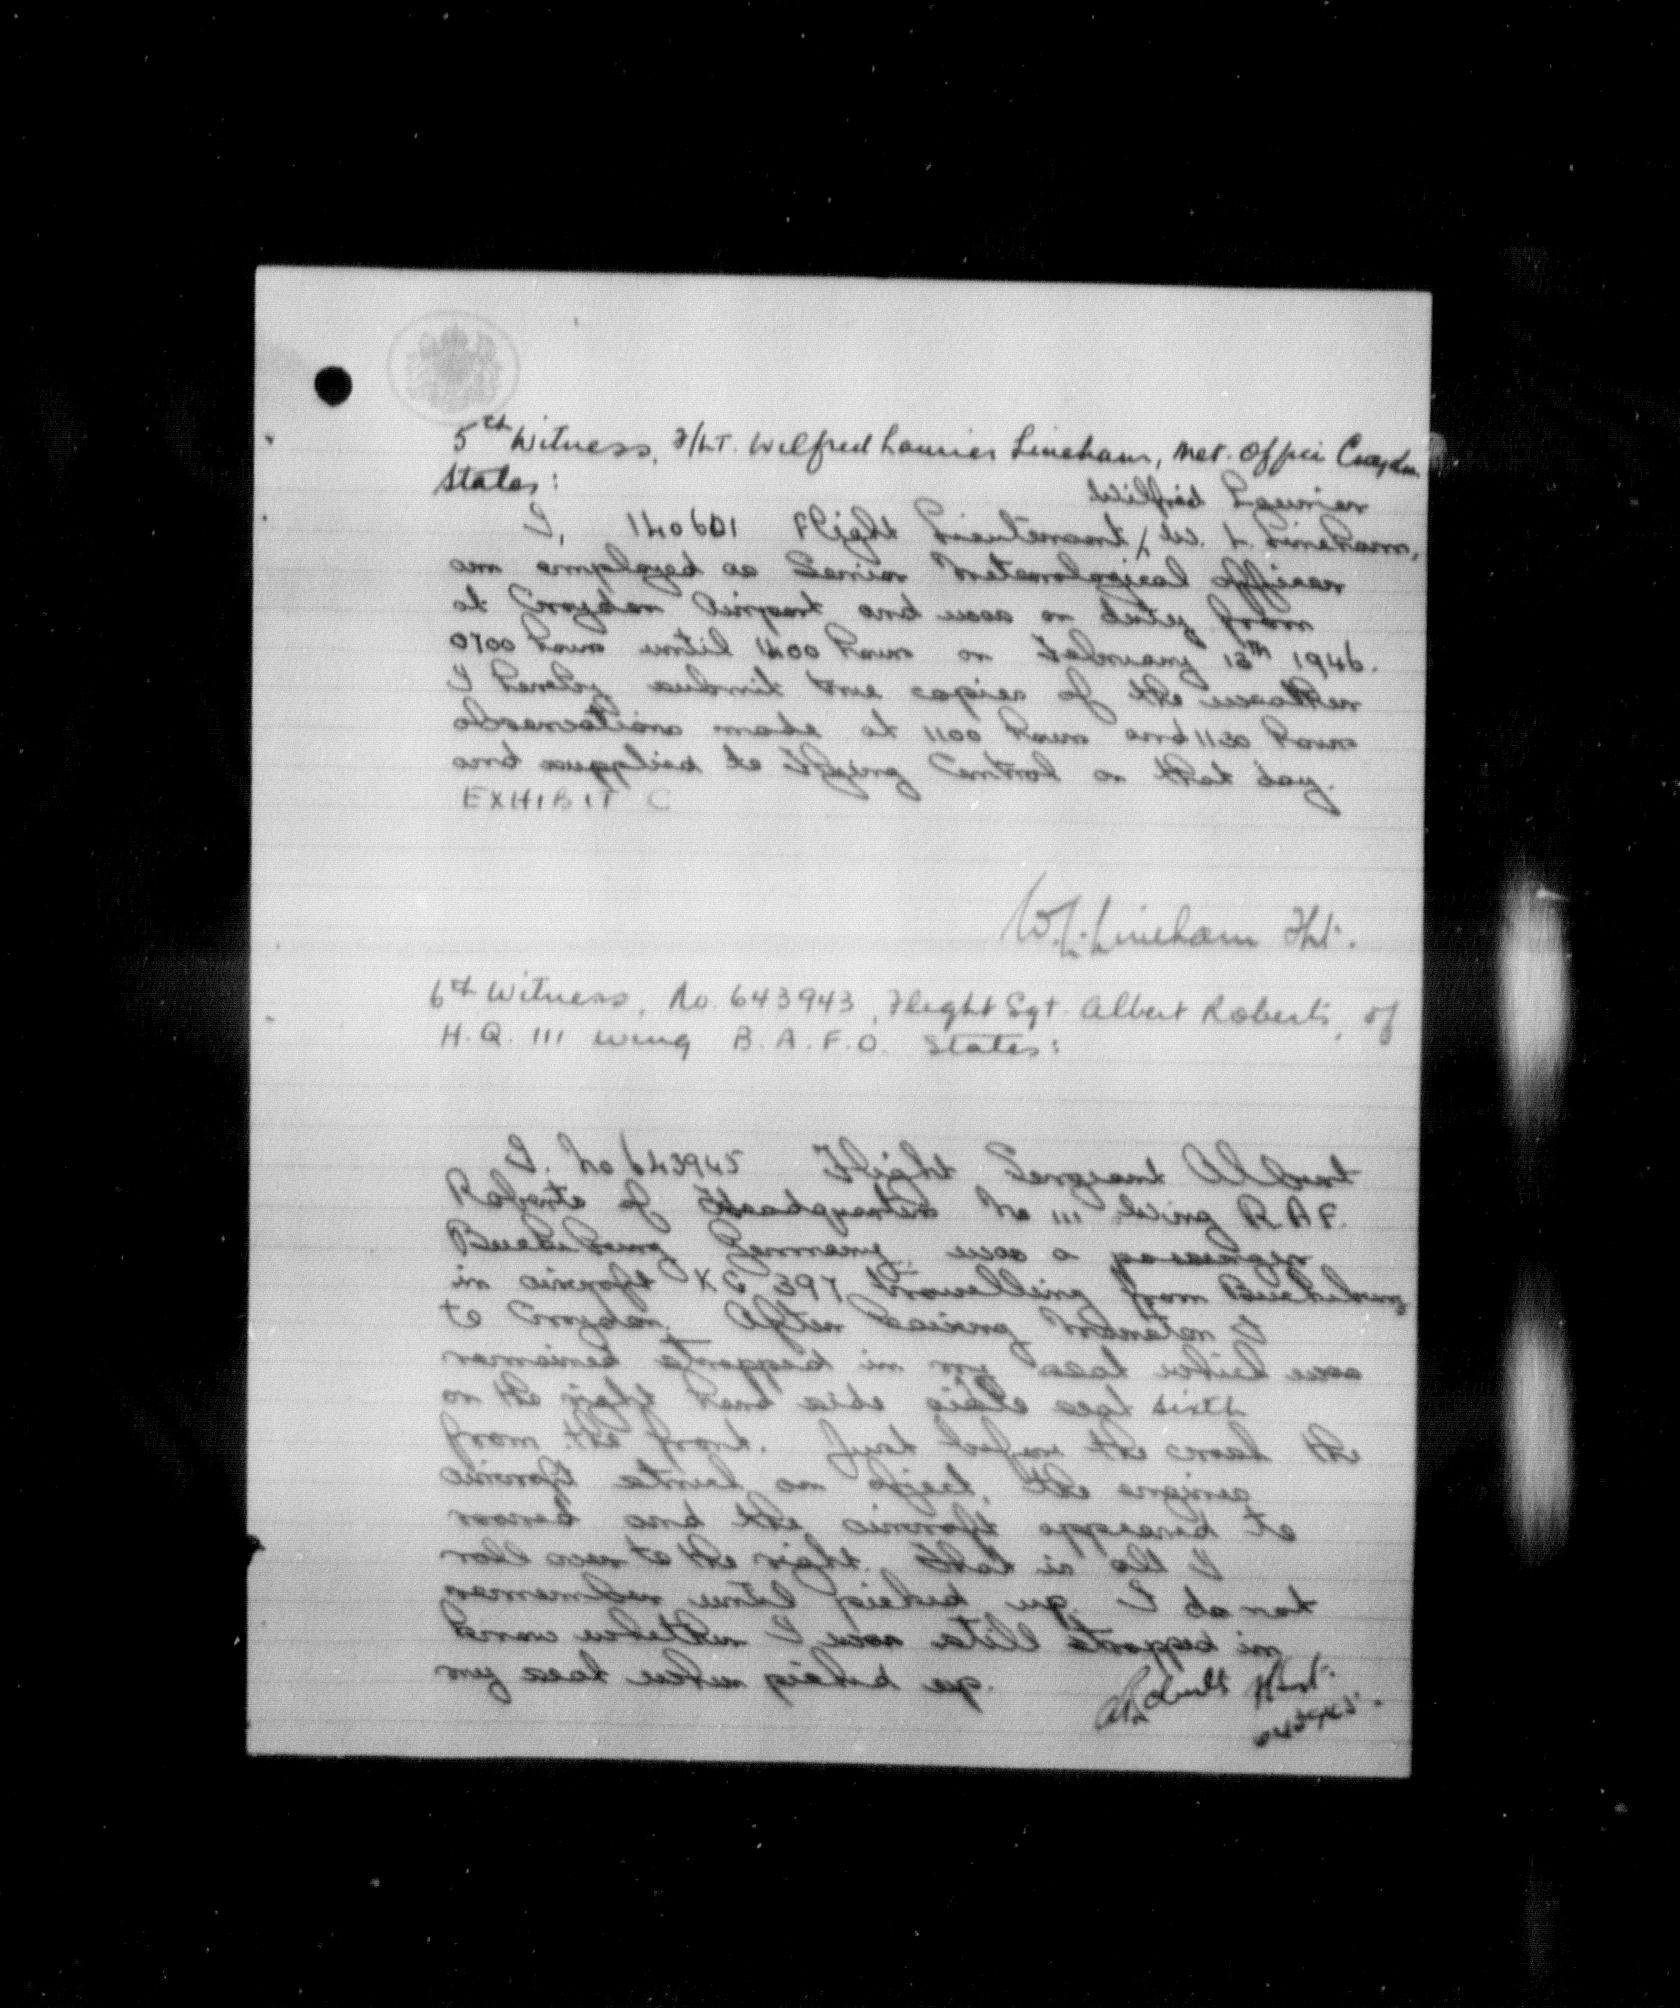 5th Witness, F/Lt. Wilfred Laurier Lineham, Met. Office Croydon
States:
Wilfrid Laurier
I, 140601 Flight Lieutenant W. L. Lineham,
am employed as Senior Meteorological Officer
at Croydon Airport and was on duty from
0700 hours until 1400 hours on February 13th 1946.
I hereby submit true copies of the weather
observations made at 1100 hours and 1130 hours
and supplied to Flying Control on that day.
EXHIBIT C
W.L. Lineham F/Lt.
6th Witness, No. 643943, Flight Sgt. Albert Roberts, of
H.Q. 111 Wing B.A.F.O. States:
I. No 643943 Flight Sergeant Albert
Roberts of Headquarters No 111 Wing R.A.F.
Buckeburg Germany was a passenger
in aircraft KG 397 travelling from Buckeburg
to Croydon. After leaving I
remained strapped in my seat which was
on the right hand side aisle seat sixth
from the front. Just before the crash the
aircraft struck an object, the engines
roared and the aircraft appeared to
roll over to the right. That is all I
remember until picked up. I do not
know whether I was still strapped in
my seat when picked up.
A Roberts F/Sgt.
643943.